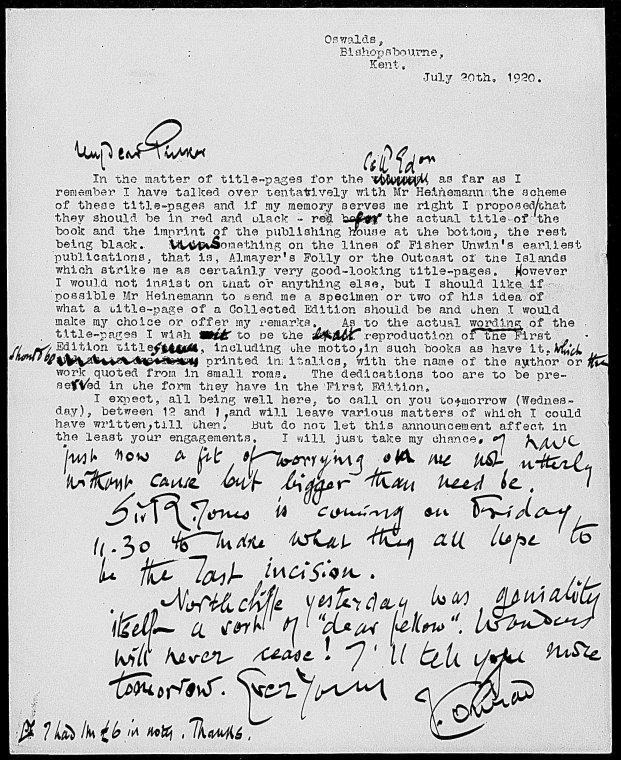 Oswalds,
Bishopsbourne,
Kent.
July 20th. 1920.
My dear Pinker
Coll Edon
In the matter of title-pages for the as far as I
remember I have talked over tentatively with Mr Heinemann the scheme
of these title-pages and if my memory serves me right I proposed that
they should be in red and black - red for the actual title of the
book and the imprint of the publishing house at the bottom, the rest
being black. something on the lines of Fisher Unwin's earliest
publications, that is, Almayer's Folly or the Outcast of the Islands
which strike me as certainly very good-looking title-pages. However
I would not insist on that or anything else, but I should like if
possible Mr Heinemann to send me a specimen or two of his idea of
what a title-page of a Collected Edition should be and then I would
make my choice or offer my remarks. As to the actual wording of the
title-pages I wish it to be the exact reproduction of the First
Edition titles, including the motto, in such books as have it, which
should be printed in italics, with the name of the author or the
work quoted from in small roms. The dedications too are to be pre-
served in the form they have in the First Edition.
I expect, all being well here, to call on you to-morrow (Wednes-
day), between 12 and 1, and will leave various matters of which I could
have written, till then. But do not let this announcement affect in
the least your engagements. I will just take my chance. I have
just now a fit of worrying on me not utterly
without cause but bigger than need be.
Sir R. Jones is coming on Friday
11.30 to make what they all hope to
be the last incision.
Northcliffe yesterday was geniality
itself - a sort of "dear fellow". Wonders
will never cease! I'll tell you more
tomorrow. Ever Yours
J. Conrad
PS I had 1m £6 in notes. Thanks.